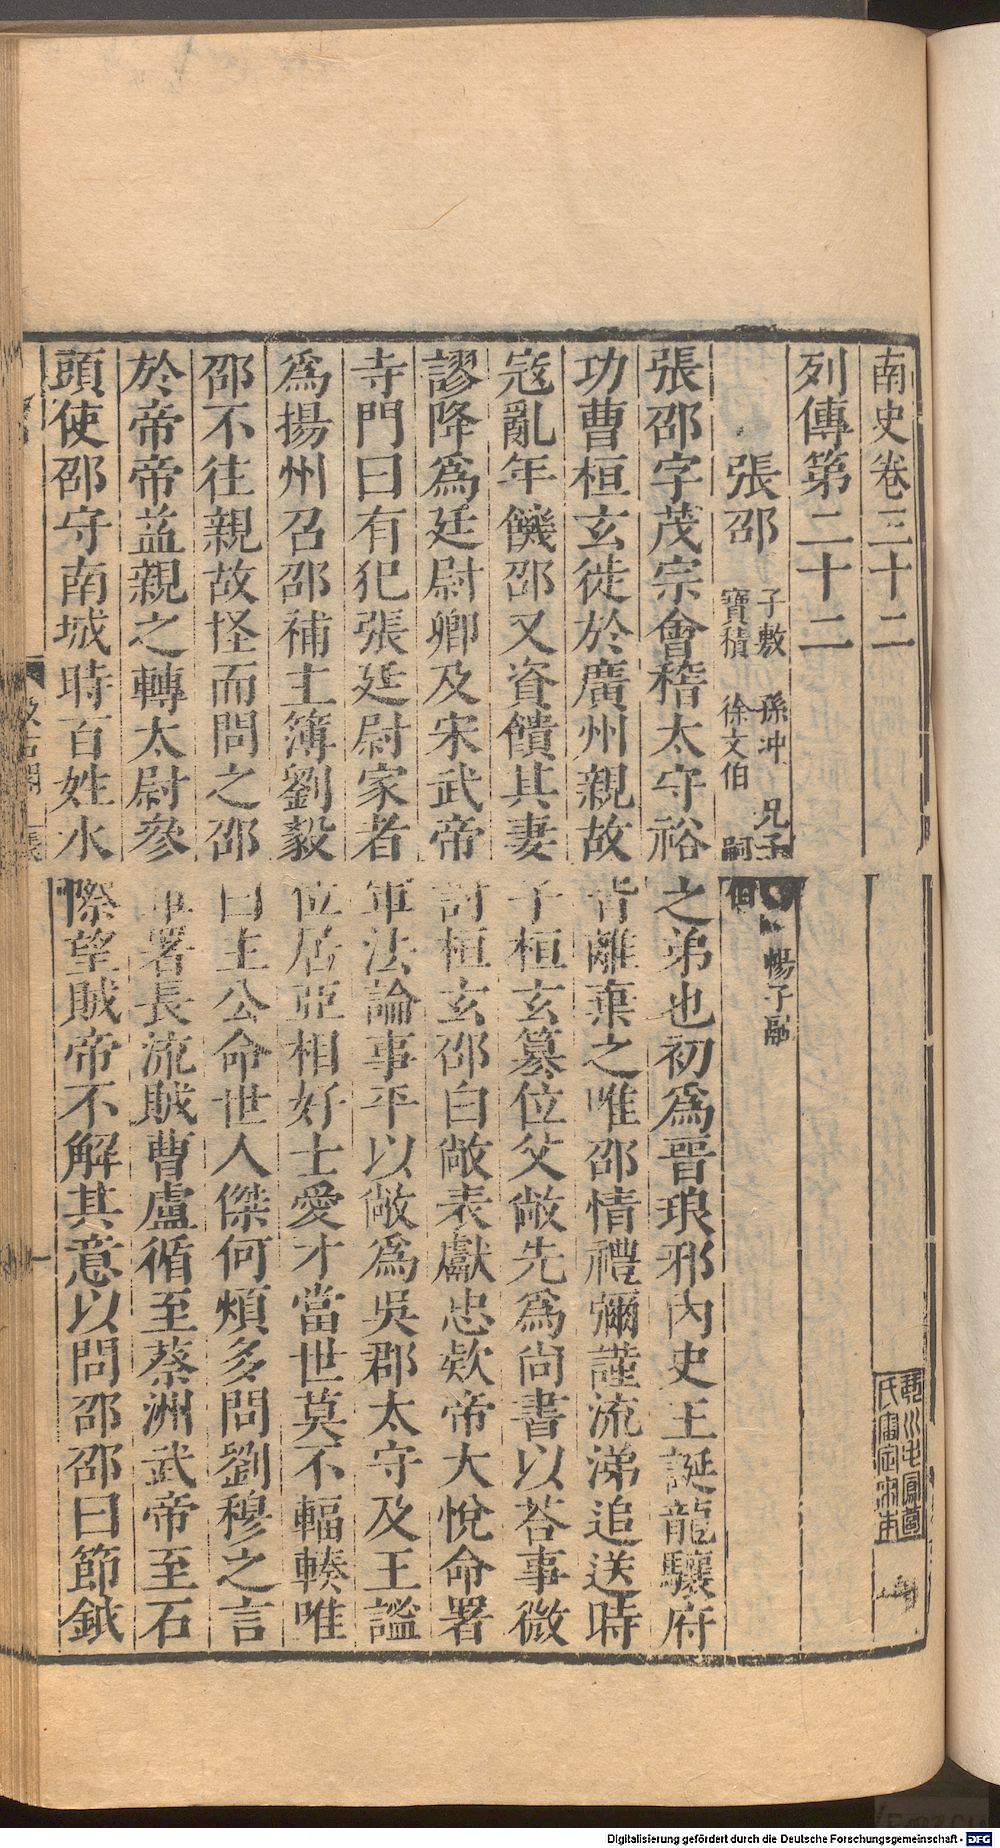 南史卷三十二
列傳第二十二
張邵 子敷 孫冲 兄子暢 暢子融
寶積 徐文伯 嗣伯
張邵字茂宗會稽太守裕之弟也初爲晋琅邪內史王誕龍驤府
功曹桓玄徙於廣州親故皆離棄之唯邵情禮彌謹流涕追送時
寇亂年饑邵又資饋其妻子桓玄篡位父敞先爲尚書以荅事微
謬降爲廷尉卿及宋武帝討桓玄邵白敞表獻忠欵帝大悅命署
寺門曰有犯張廷尉家者軍法論事平以敞爲吳郡太守及王謐
爲揚州召邵補主簿劉毅位居亞相好士愛才當世莫不輻輳唯
邵不往親故怪而問之邵曰主公命世人傑何煩多問劉穆之言
於帝帝益親之轉太尉參軍署長流賊曹盧循至蔡洲武帝至石
頭使邵守南城時百姓水際望賊帝不解其意以問邵邵曰節鉞
汲古閣
Digitalisierung gefördert durch die Deutsche Forschungsgemeinschaft - DFG